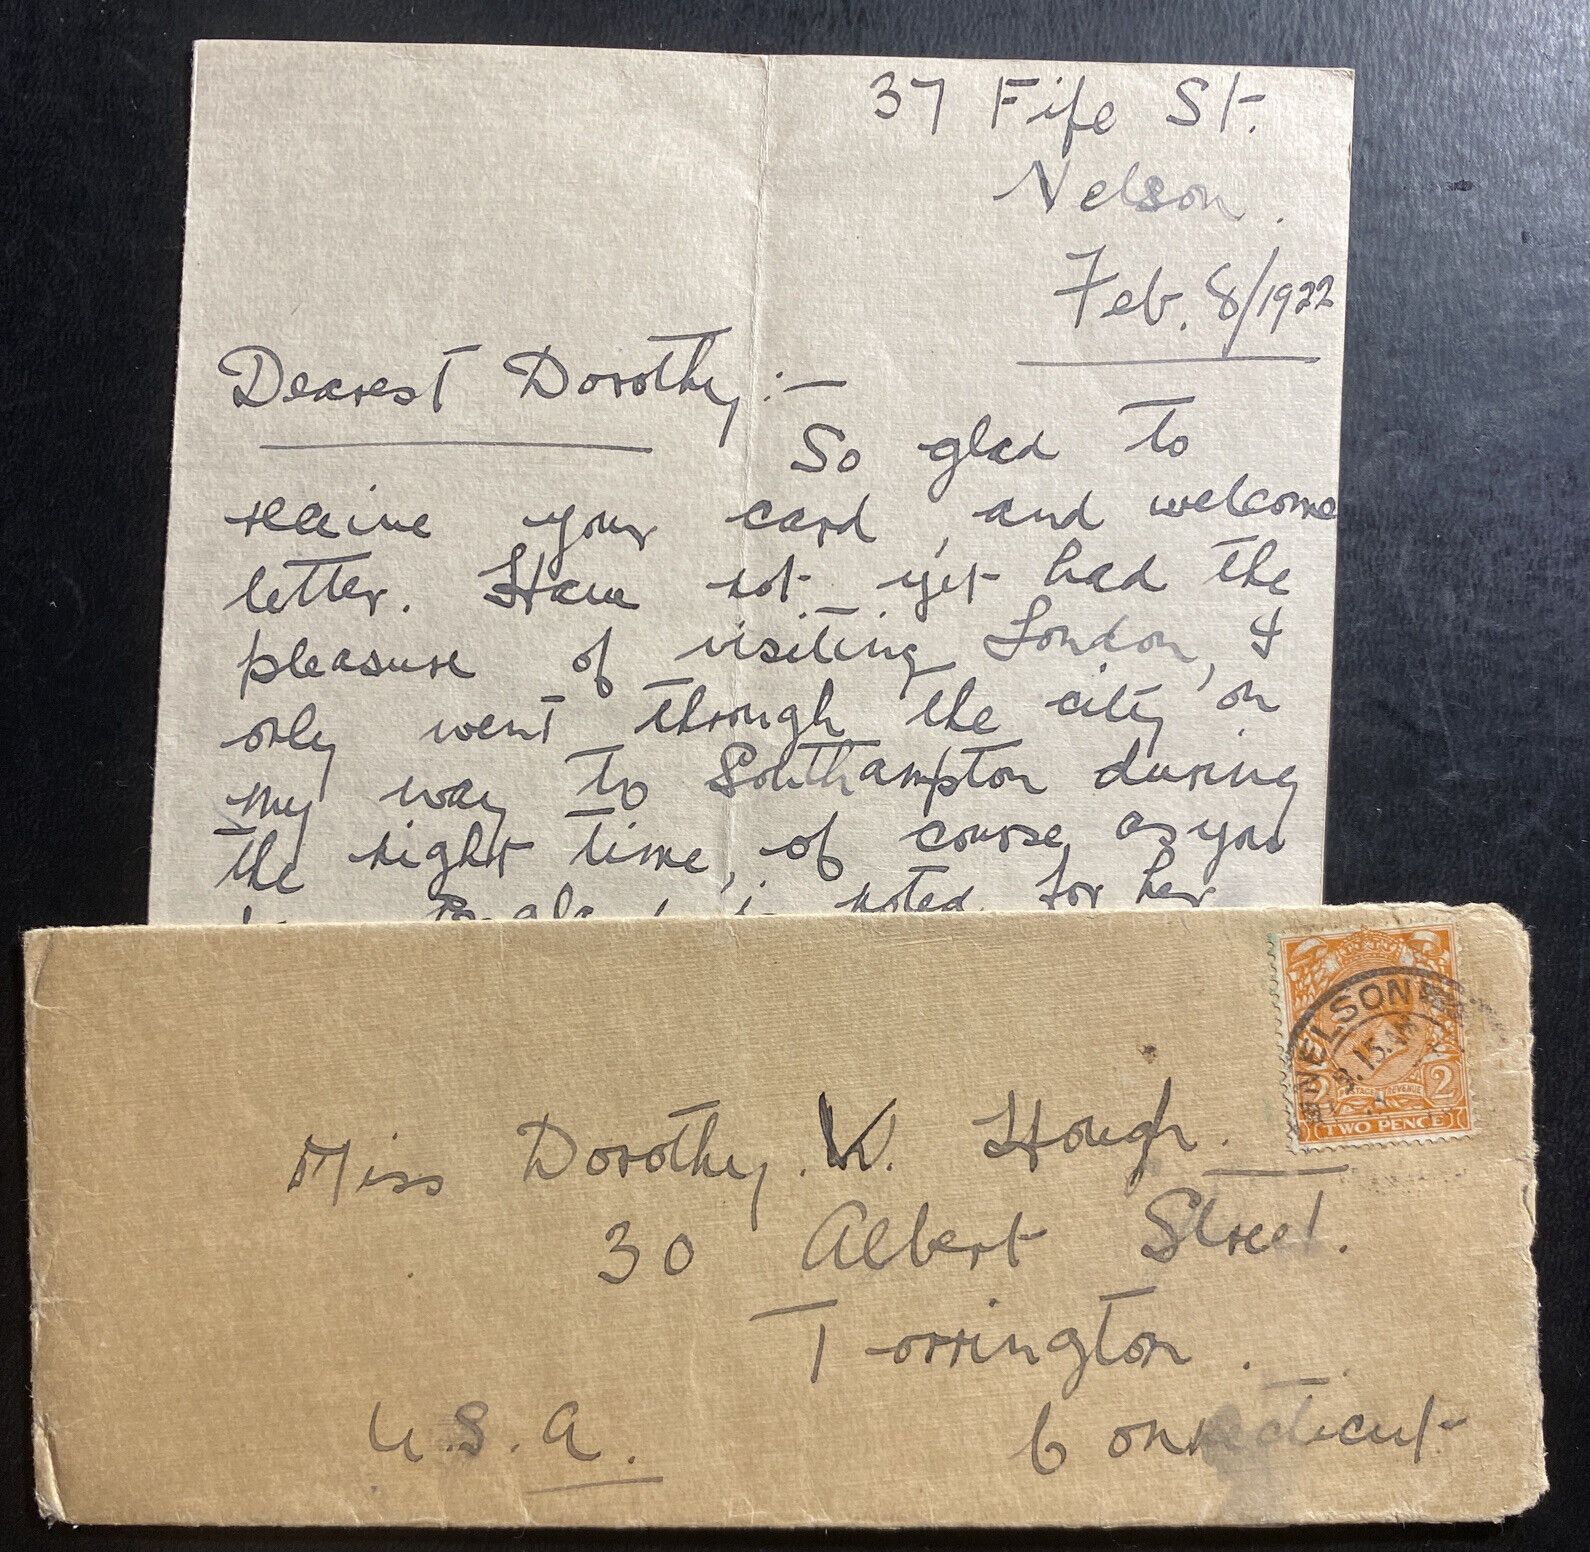 37 Fife St.
Nelson.
Feb. 8/1922
Dearest Dorothy:-
So glad to
receive your card, and welcome
letter. Have not yet had the
pleasure of visiting London, &
only went through the city on
my way to Southampton during
the night time, of course, as you
noted for her
NELSON
15.AM
2 2
POSTAGE REVENUE
TWO PENCE
Miss Dorothy. W. Hough.
30 Albert Street.
Torrington.
U.S.A. Connecticut.